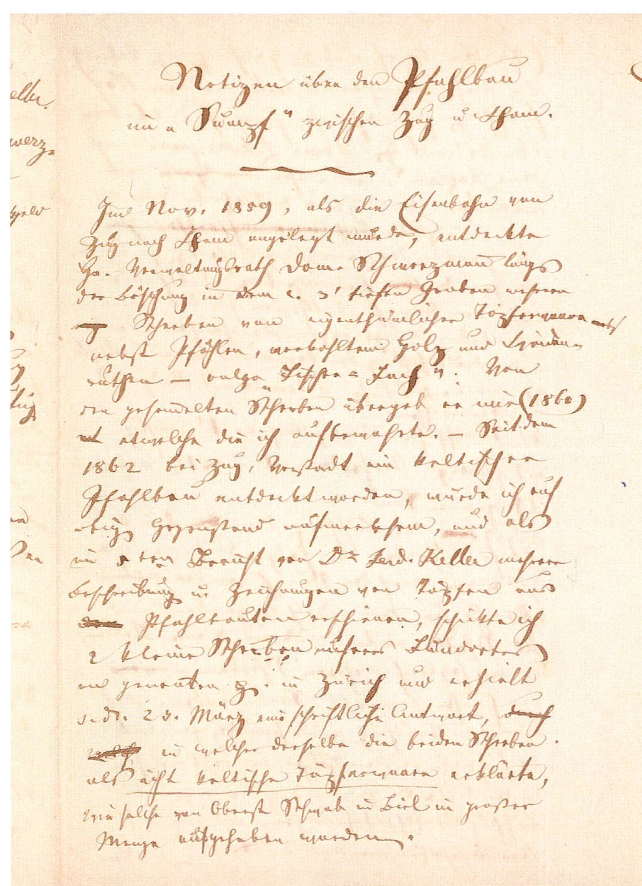 Notizen über den Pfahlbau
im „Sumpf" zwischen Zug u. Cham.
Im Nov. 1859, als die Eisenbahn von
Zug nach Cham angelegt wurde, entdeckte
Hr. Verwaltungsrath Dom. Schwerzmann längs
der Böschung in dem c. 3' tiefen Graben mehrere
Scherben von eigenthümlicher Töpferwaare
nebst Pfählen, verkohltem Holz und
ruthen — vulgo „Tischer = Fach". Von
den gesammelten Scherben übergab er mir (1860)
etwelche die ich aufbewahrte. — Seitdem
1862 bei Zug, Vorstadt ein keltischer
Pfahlbau entdeckt worden, wurde ich auf
obig. Gegenstand aufmerksam, und als
im Bericht von Dr. Ferd. Keller mehrere
Beschreibung u. Zeichnungen von Töpfen aus
Pfahlbauten erschienen, schickte ich
2 kleine Scherben unseres Fundortes
an genannten in Zürich und erhielt
s. d. 23. März eine schriftliche Antwort, durch
welche in welcher derselbe die beiden Scherben
als ächt keltische Töpferwaare erklärte,
wie solche von Oberst Schwab in Biel in großer
Menge aufgehoben worden.